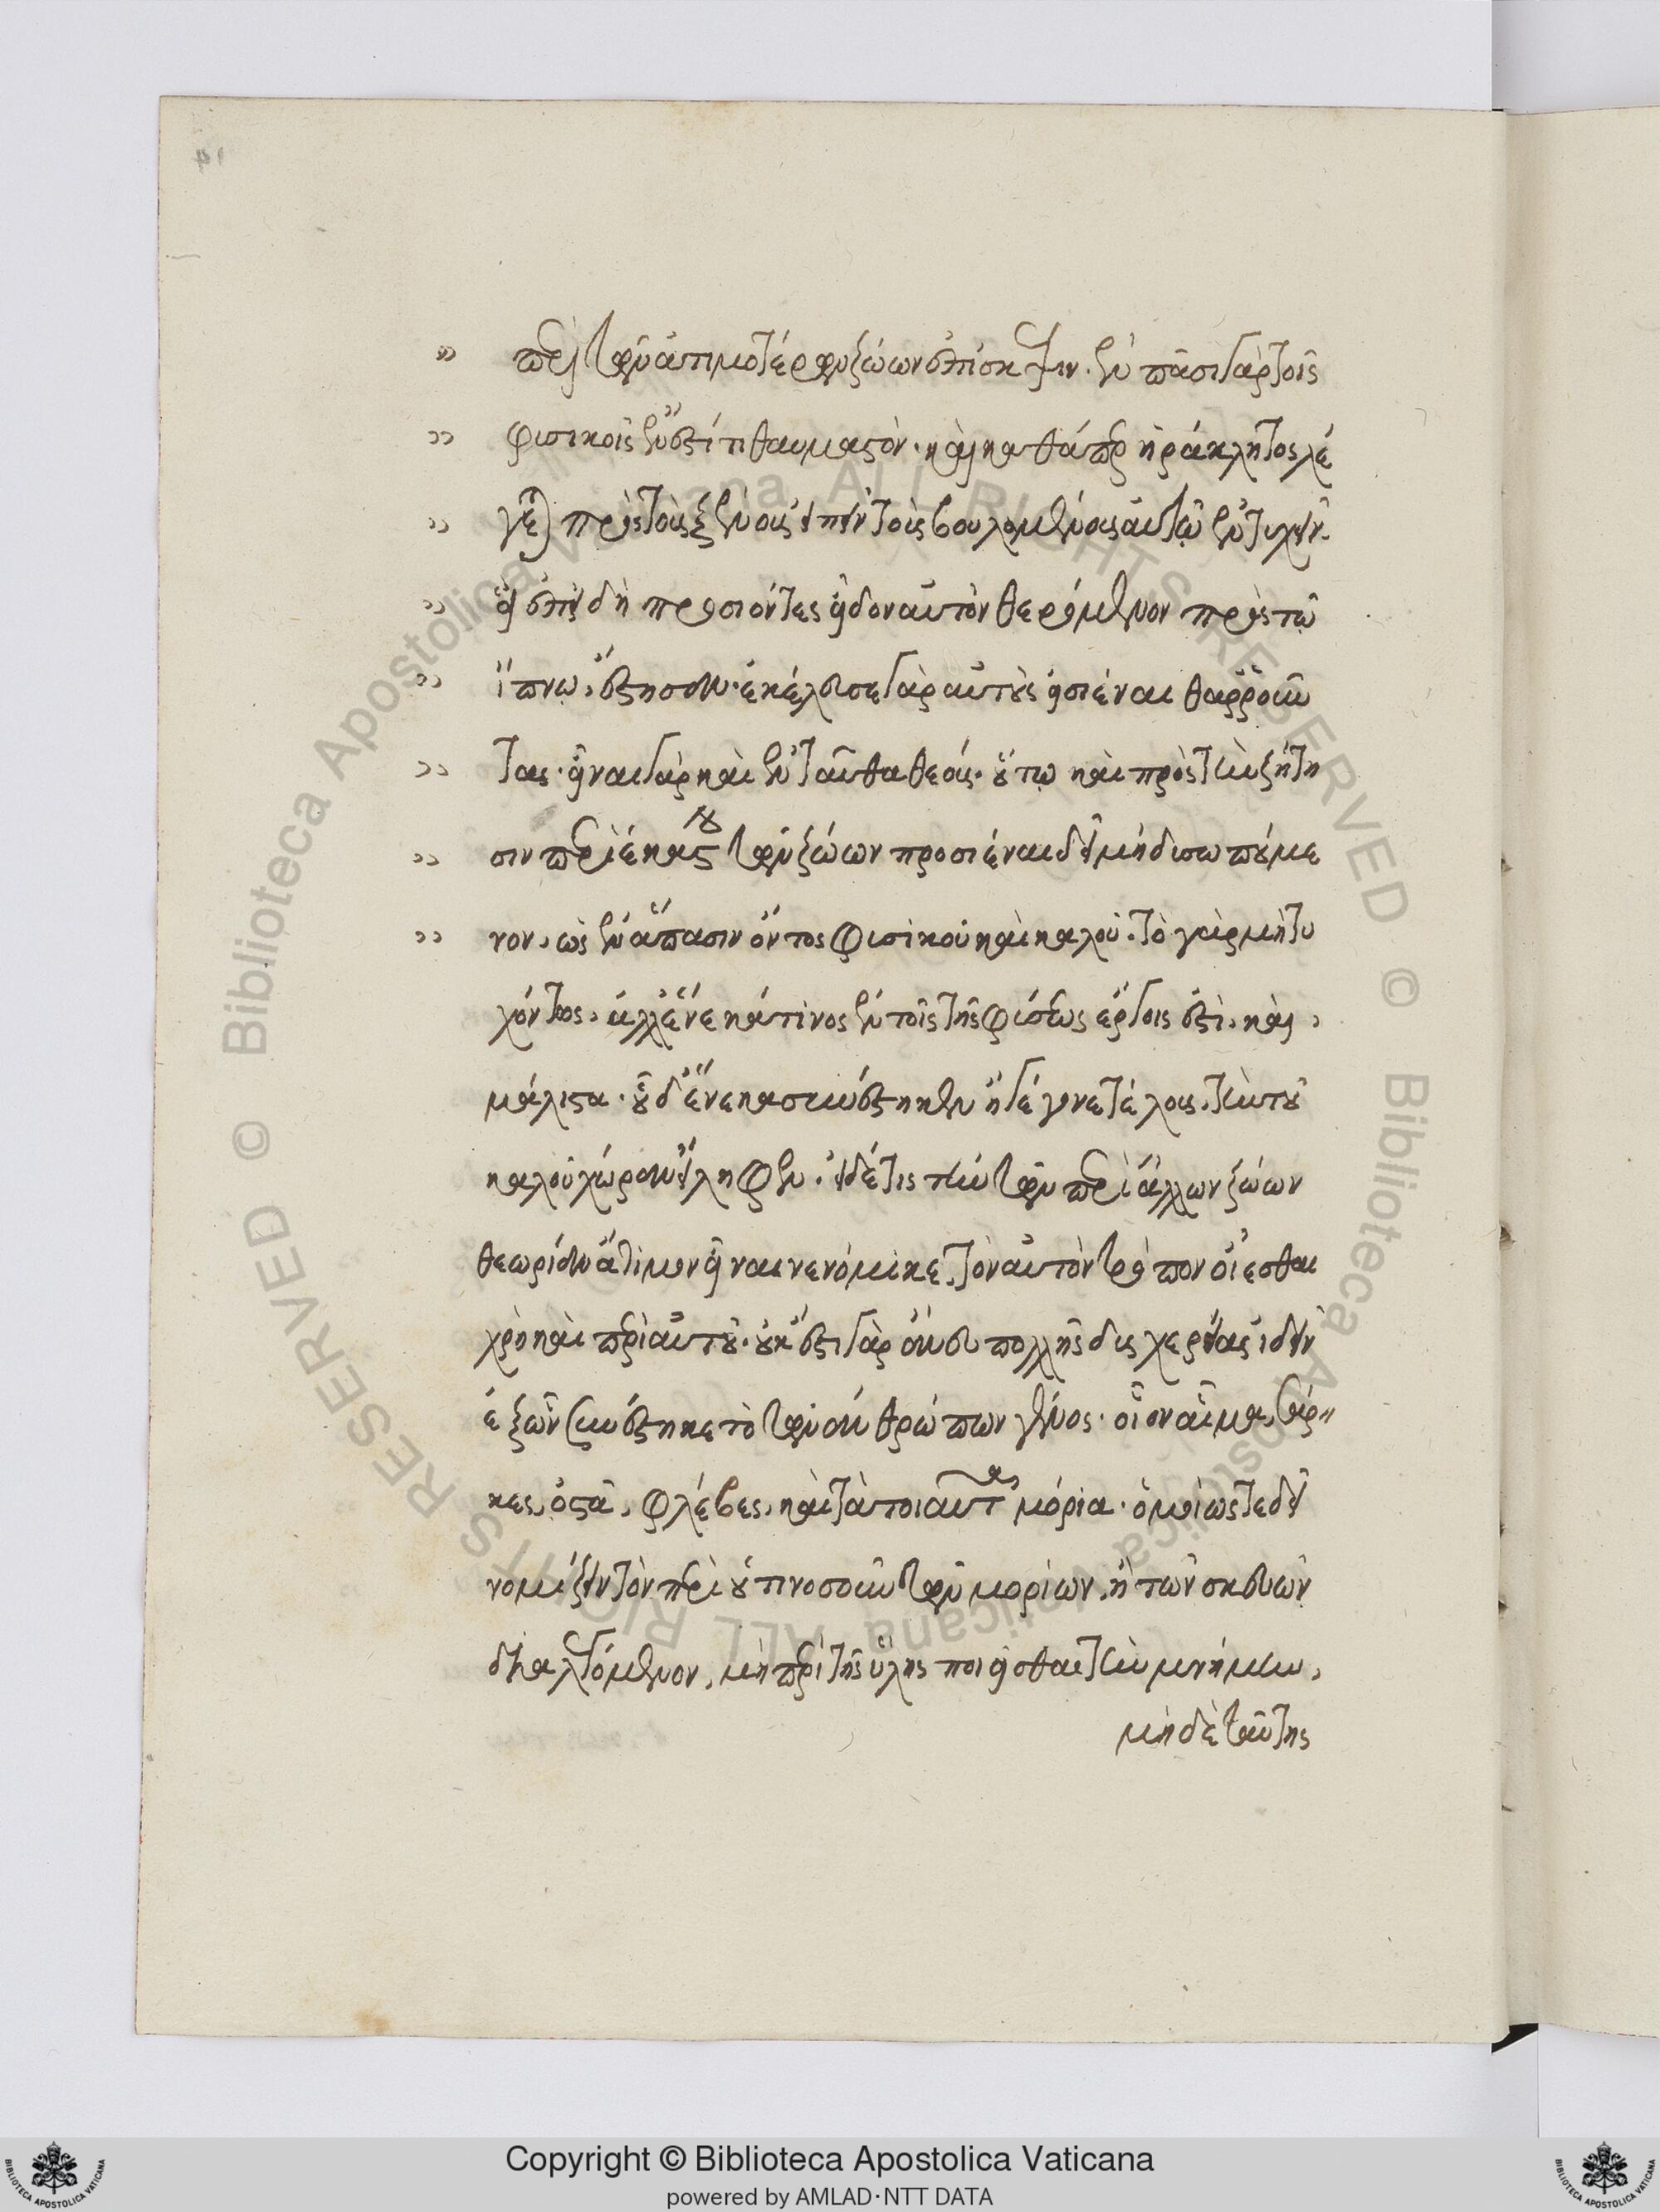 περὶ τῶν ἀτιμοτέρων ζώων ἐπίσκεψιν. ἐν πᾶσι γὰρ τοῖς
φυσικοῖς ἔνεστί τι θαυμαστόν. καὶ καθάπερ ἡράκλητος λέ
γεται πρὸς τοὺς ξένους εἰπεῖν τοὺς βουλομένους αὐτῷ ἐντυχεῖν.
οἳ ἐπειδὴ προσιόντες εἶδον αὐτὸν θερόμενον πρὸς τῷ
ἵπνῳ, ἔστησαν. ἐκέλευσε γὰρ αὐτοὺς εἰσιέναι θαρροῦν
τας. εἶναι γὰρ καὶ ἐνταῦθα θεούς. οὕτω καὶ πρὸς τὴν ζήτη
σιν περὶ ἑκάστου τῶν ζώων προσιέναι δεῖ μὴ δυσωπούμε
νον, ὡς ἐν ἅπασιν ὄντος φυσικοῦ καὶ καλοῦ. τὸ γὰρ μὴ τυ
χόντως, ἀλλ' ἕνεκά τινος ἐν τοῖς τῆς φύσεως ἔργοις ἐστὶ, καὶ
μάλιστα. οὗ δ' ἕνεκα συνέστηκεν ἢ γέγονε τέλους, τὴν τοῦ
καλοῦ χώραν εἴληφεν. εἰ δέ τις τὴν τῶν περὶ ἄλλων ζώων
θεωρίαν ἄτιμον εἶναι νενόμικε, τὸν αὐτὸν τρόπον οἴεσθαι
χρὴ καὶ περὶ αὐτοῦ. οὐκ ἔστι γὰρ ἄνευ πολλῆς δυσχερείας ἰδεῖν
ἐξ ὧν συνέστηκε τὸ τῶν ἀνθρώπων γένος. οἷον αἷμα, σάρ
κες, ὀστᾶ, φλέβες, καὶ τὰ τοιαῦτα μόρια. ὁμοίως τε δεῖ
νομίζειν τὸν περὶ οὕτινοσοῦν τῶν μορίων, ἢ τῶν σκευῶν
διαλεγόμενον, μὴ περὶ τῆς ὕλης ποιεῖσθαι τὴν μνήμην,
μηδὲ ταύτης